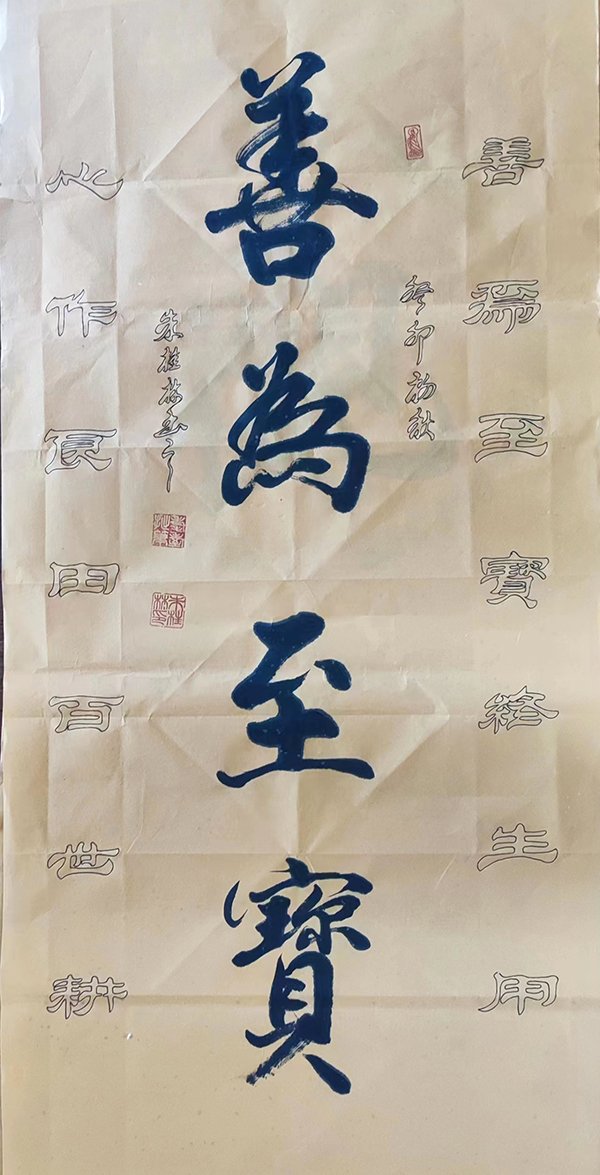 善為至寶終生用
癸卯初秋
善為至寶
朱桂林书
心作良田百世耕